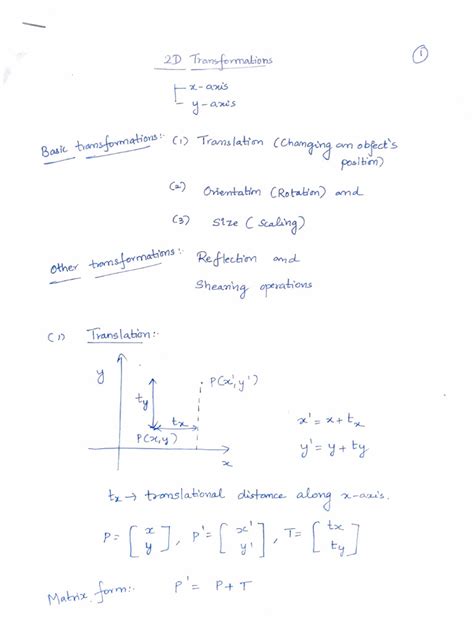 2D Transformations
1
x-axis
y-axis
Basic transformations:- (1) Translation (Changing an object's
position)
(2) Orientation (Rotation) and
(3) Size (scaling)
Other transformations:- Reflection and
Shearing operations
(1) Translation:-
y
P(x',y')
ty
tx
P(x,y)
x
x' = x + tx
y' = y + ty
tx → translational distance along x-axis.
P = [x y], P' = [x' y'], T = [tx ty]
Matrix form:- P' = P + T